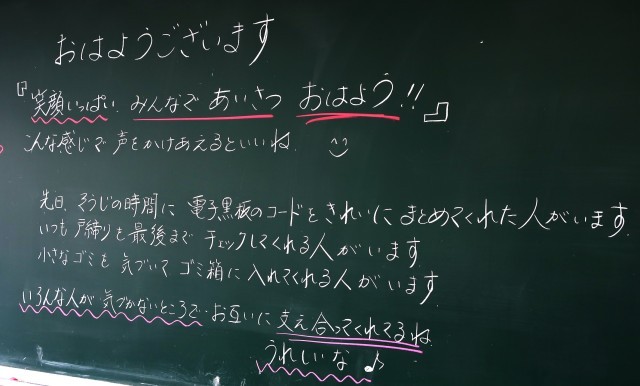 おはようございます
『笑顔いっぱい みんなで あいさつ おはよう!!』
こんな感じで声をかけあえるといいね
先日、そうじの時間に 電子黒板のコードをきれいに まとめてくれた人がいます
いつも戸締りを最後まで チェックしてくれる人がいます
小さなゴミを 気づいて ゴミ箱に 入れてくれる人がいます
いろんな人が 気づかないところで お互いに 支え合ってくれてるね
うれしいな♪